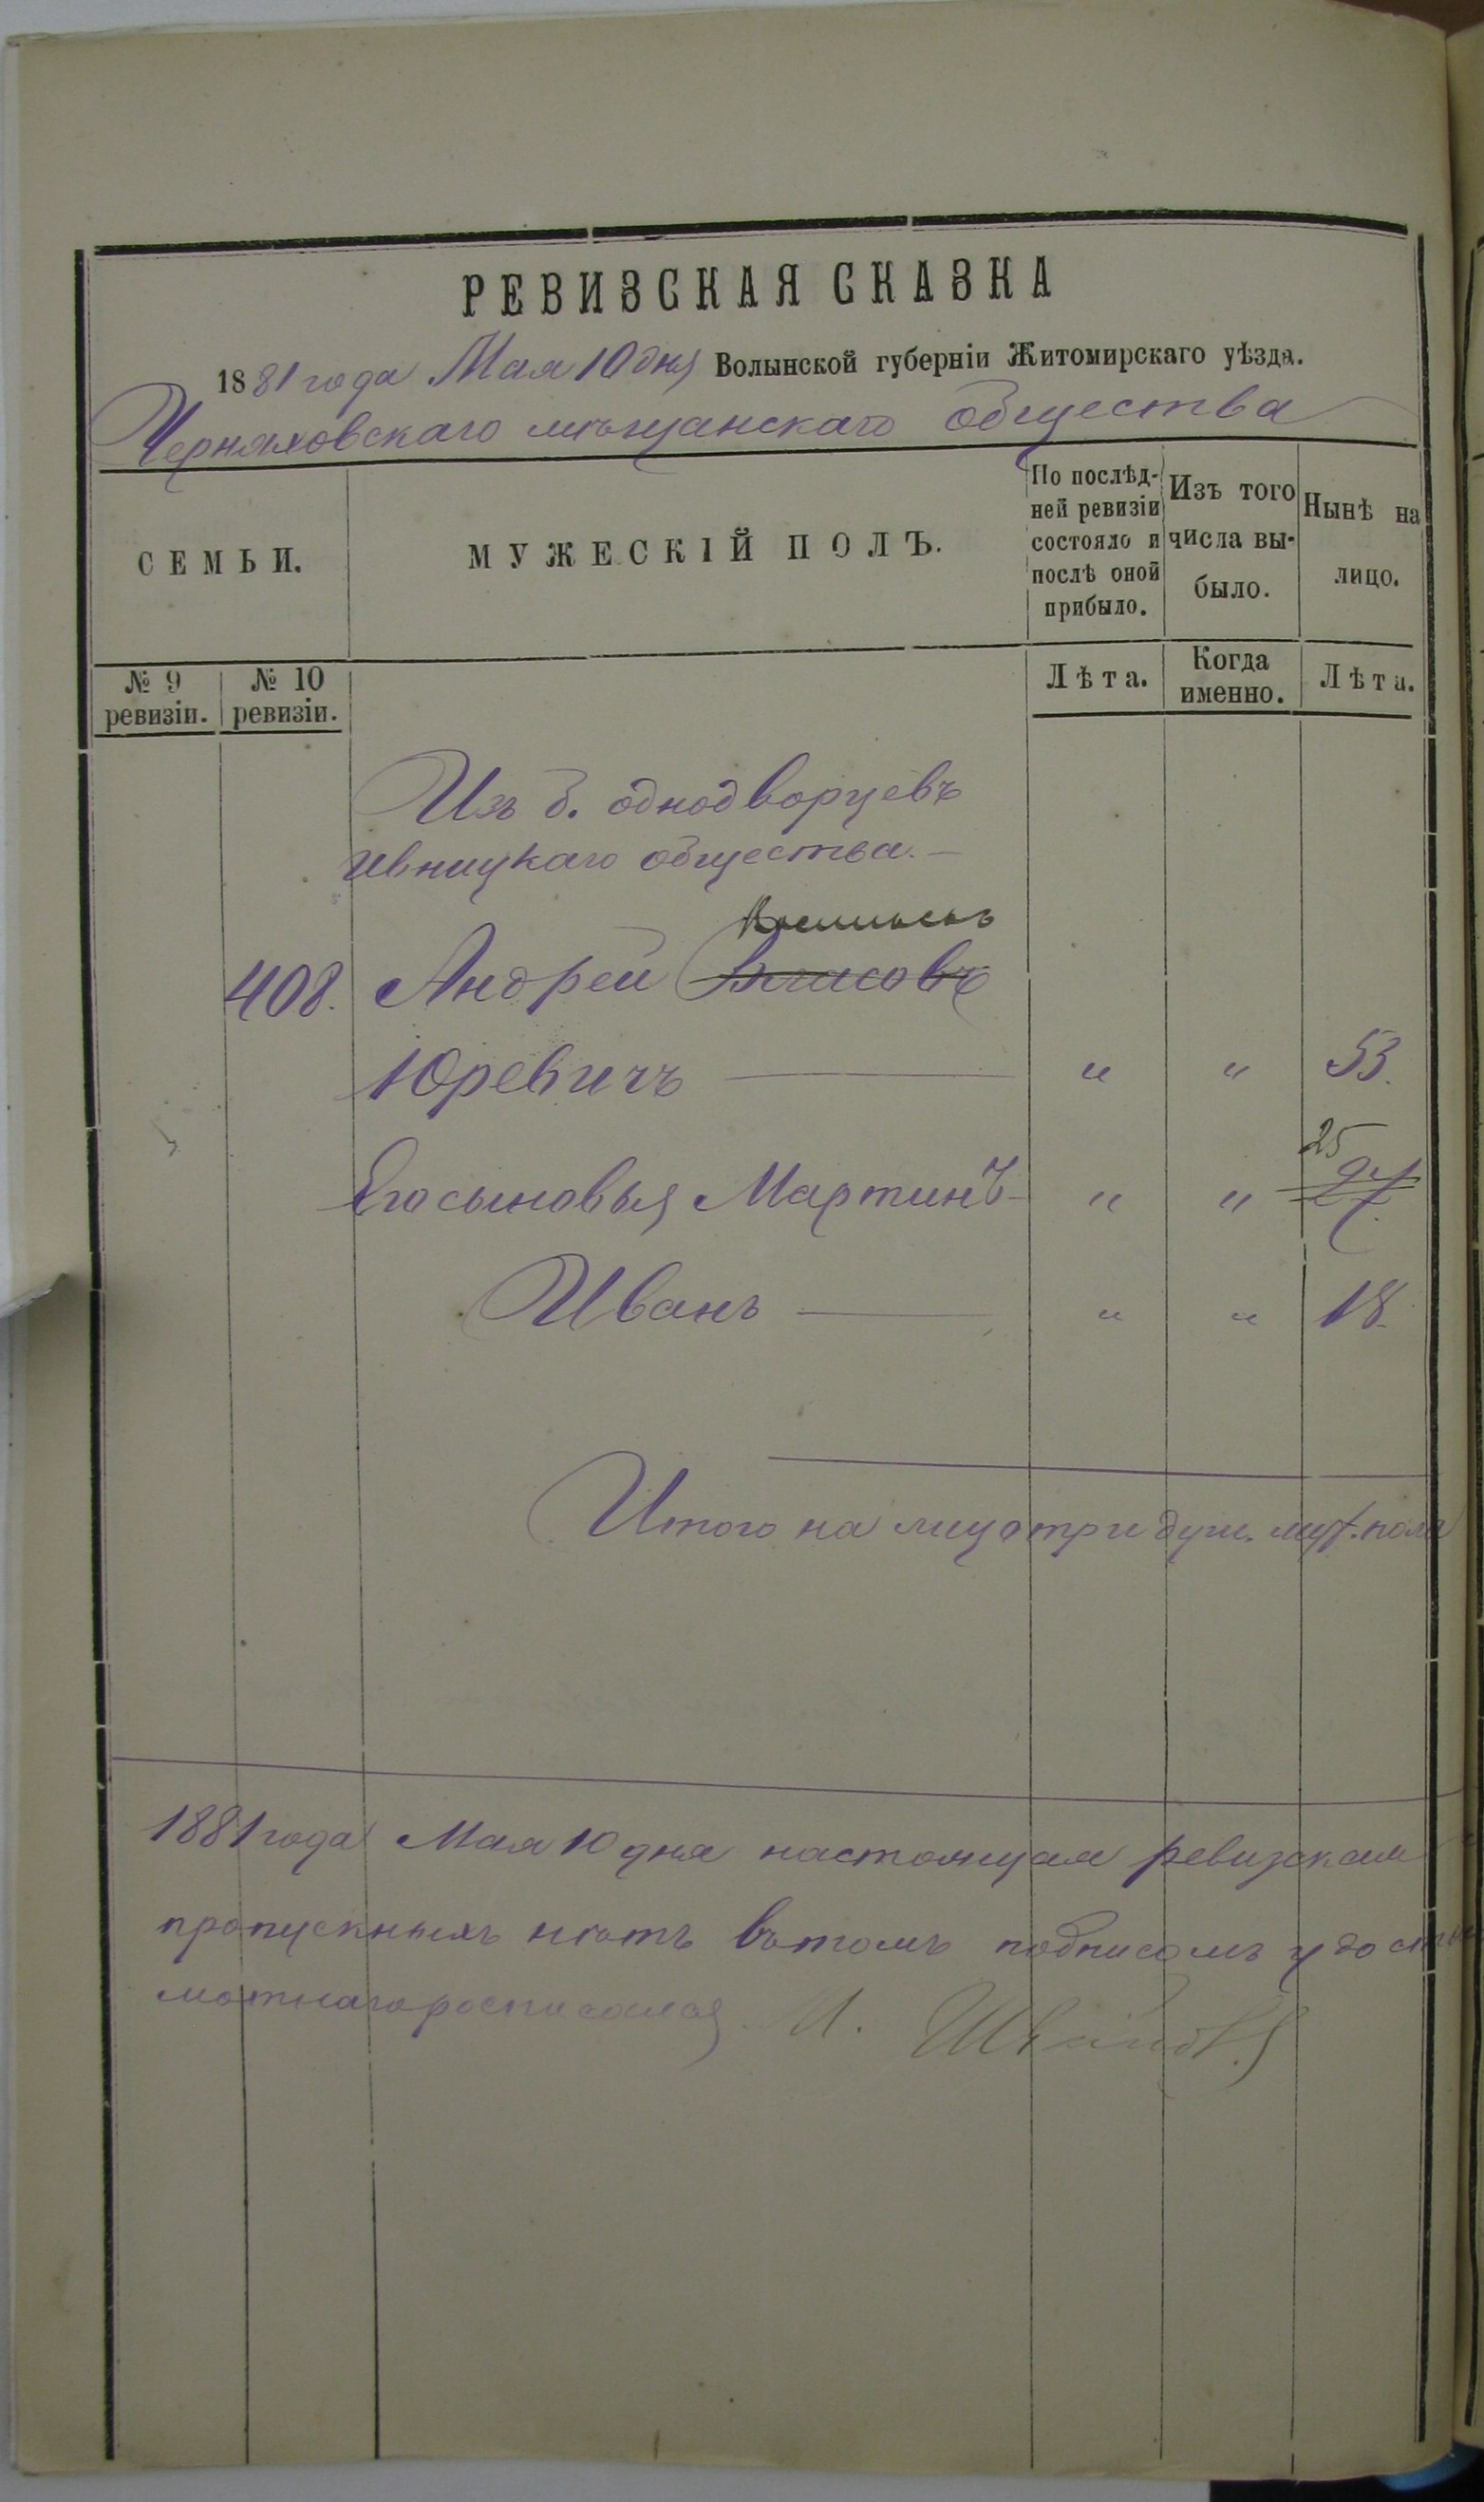 РЕВИЗСКАЯ СКАЗКА
1881 года Мая 10 дня Волынской губерніи Житомирскаго уѣзда.
Черняховскаго мѣщанскаго общества
СЕМЬИ.
МУЖЕСКІЙ ПОЛЪ.
По послѣд-
ней ревизіи
состояло и
послѣ оной
прибыло.
Изъ того
числа вы-
было.
Нынѣ на
лицо.
№ 9
ревизіи.
№ 10
ревизіи.
Лѣта.
Когда
именно.
Лѣта.
Изъ б. однодворцевъ
Ивницкаго общества.
408. Андрей Власовъ
Юревичъ — " " 53.
25
Его сыновья Мартинъ - " " 27.
Иванъ — " " 18.
Итого на лицо три душ. муж. пола
1881 года Мая 10 дня настоящая ревизская
пропускныхъ нѣтъ въ томъ подписомъ удостов
мотнаго росписался И.